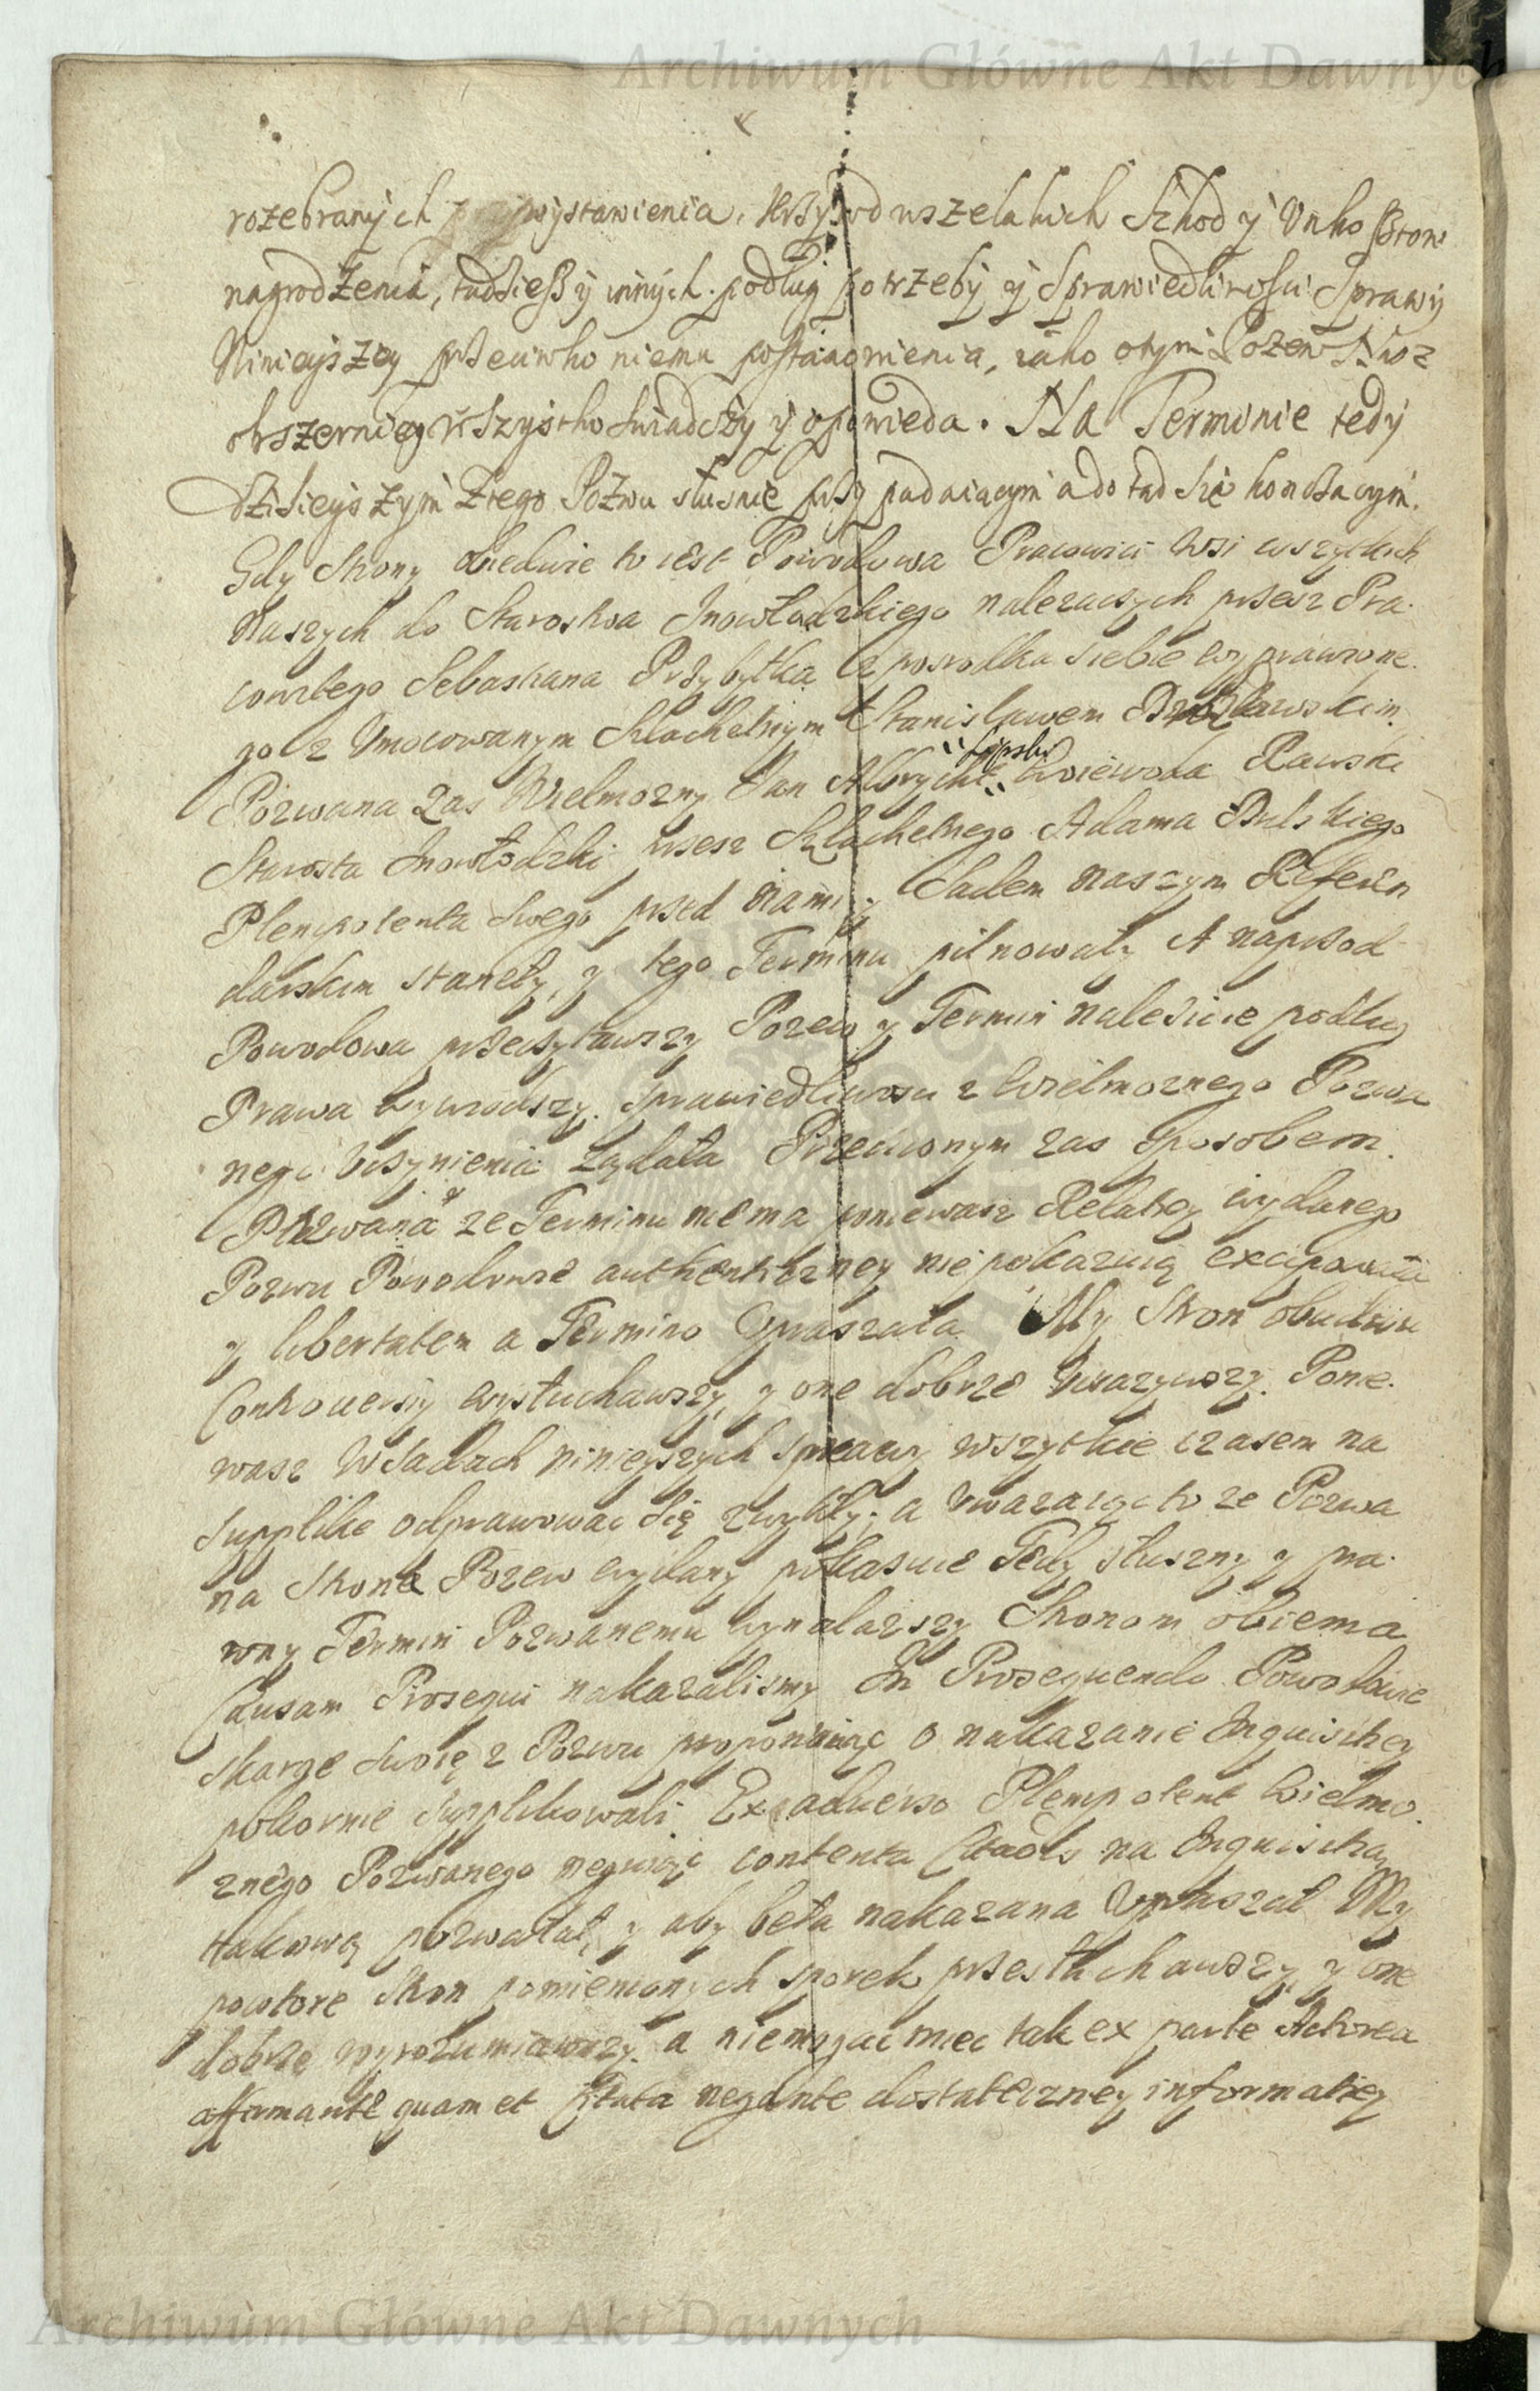 Archiwum Główne Akt Dawnych
rozebranych przywystawienia, Krzywd wszelakich Szkod y Vnko
nagrodzenia, tudziesz y innych podług potrzeby y Sprawiedliwosci Sprawy
Ninieyszey przeciwko niemu postanowienia, iako otym Pozew Nasz
obszerniey wszystko swiadczy y opowieda. Na Terminie tedy
dzisieyszym Ztego Pozwu słusnie przypadaiacym a do tąd się
Gdy Strony obiedwie to iest Powodowa Pracowici Wsi wszytkich
Naszych do Starostwa Inowłodzkiego należacych przesz Pra-
cowitego Sebastiana Przybytka z posrodku siebie wyprawione-
go z Vmocowanym Szlachetnym Stanisławem
Lipski
Pozwana zas Wielmozny Pan Albrycht Woiewoda Rawski
Starosta Inowłodzki przesz Szlachetnego Adama Bulskiego
Plenipotenta swego przed nami y Sądem naszym Referen
darskim stanęły, y tego Terminu pilnowały A naprzod
Powodowa przeczytawszy Pozew y Termin należicie podług
Prawa wywiodszy, sprawiedliwosci z Wielmoznego Pozwa
nego vczynienia żądała Przeciwnym zas sposobem
Pozwana ze Terminu niema poniewasz Relatiey wydanego
Pozwu Powodowie authenticzney nie pokazuią excypowała
y libertatem a Termino vpraszała My Stron obudwu
Controuersiy wysłuchawszy, y one dobrze vwazywszy. Ponie-
wasz W Sądach ninieyszych sprawy wszytkie czasem na
supplikę odprawować się zwykły; a vwazaiąc to ze Pozwa
na Strona Pozew wydany pokazuie Tedy słuszny y pra-
wny Termin Pozwanemu wynalazszy Stronom obiema
Causam Prosequi nakazalismy In Prosequendo Powodowie
skargę swoię z Pozwu proponuiąc o nakazanie Inquisitiey
pokornie supplikowali Ex aduerso Plenipotent Wielmo-
znego Pozwanego neguiąc contenta Citaois na Inquisitią
takową pozwalał, y aby beła nakazana vpraszał My
powtore Stron pomienionych sporek przesłuchawszy, y one
dobrze wyrozumiawszy, a niemogąc miec tak ex parte Actorea
affirmante quam et Citata negante dostateczney informatiey
Archiwum Główne Akt Dawnych